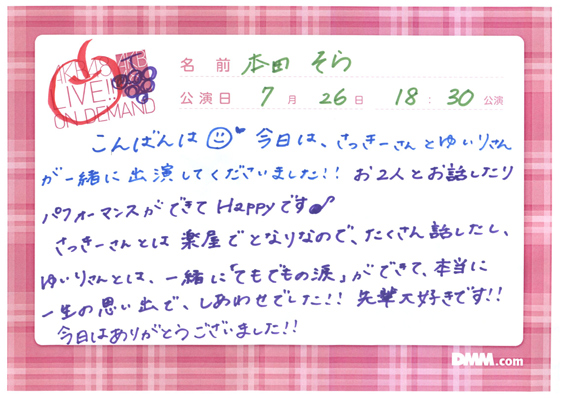 AKB48
LIVE!!
ON DEMAND
名前 本田 そら
公演日 7月26日 18:30公演
こんばんは 今日は、さっきーさんとゆいりさん
が一緒に出演してくださいました!! お2人とお話したり
パフォーマンスができてHappyです♪
さっきーさんとは楽屋でとなりなので、たくさん話したし、
ゆいりさんとは、一緒に「てもでもの涙」ができて、本当に
一生の思い出で、しあわせでした!! 先輩大好きです!!
今日はありがとうございました!!
DMM.com